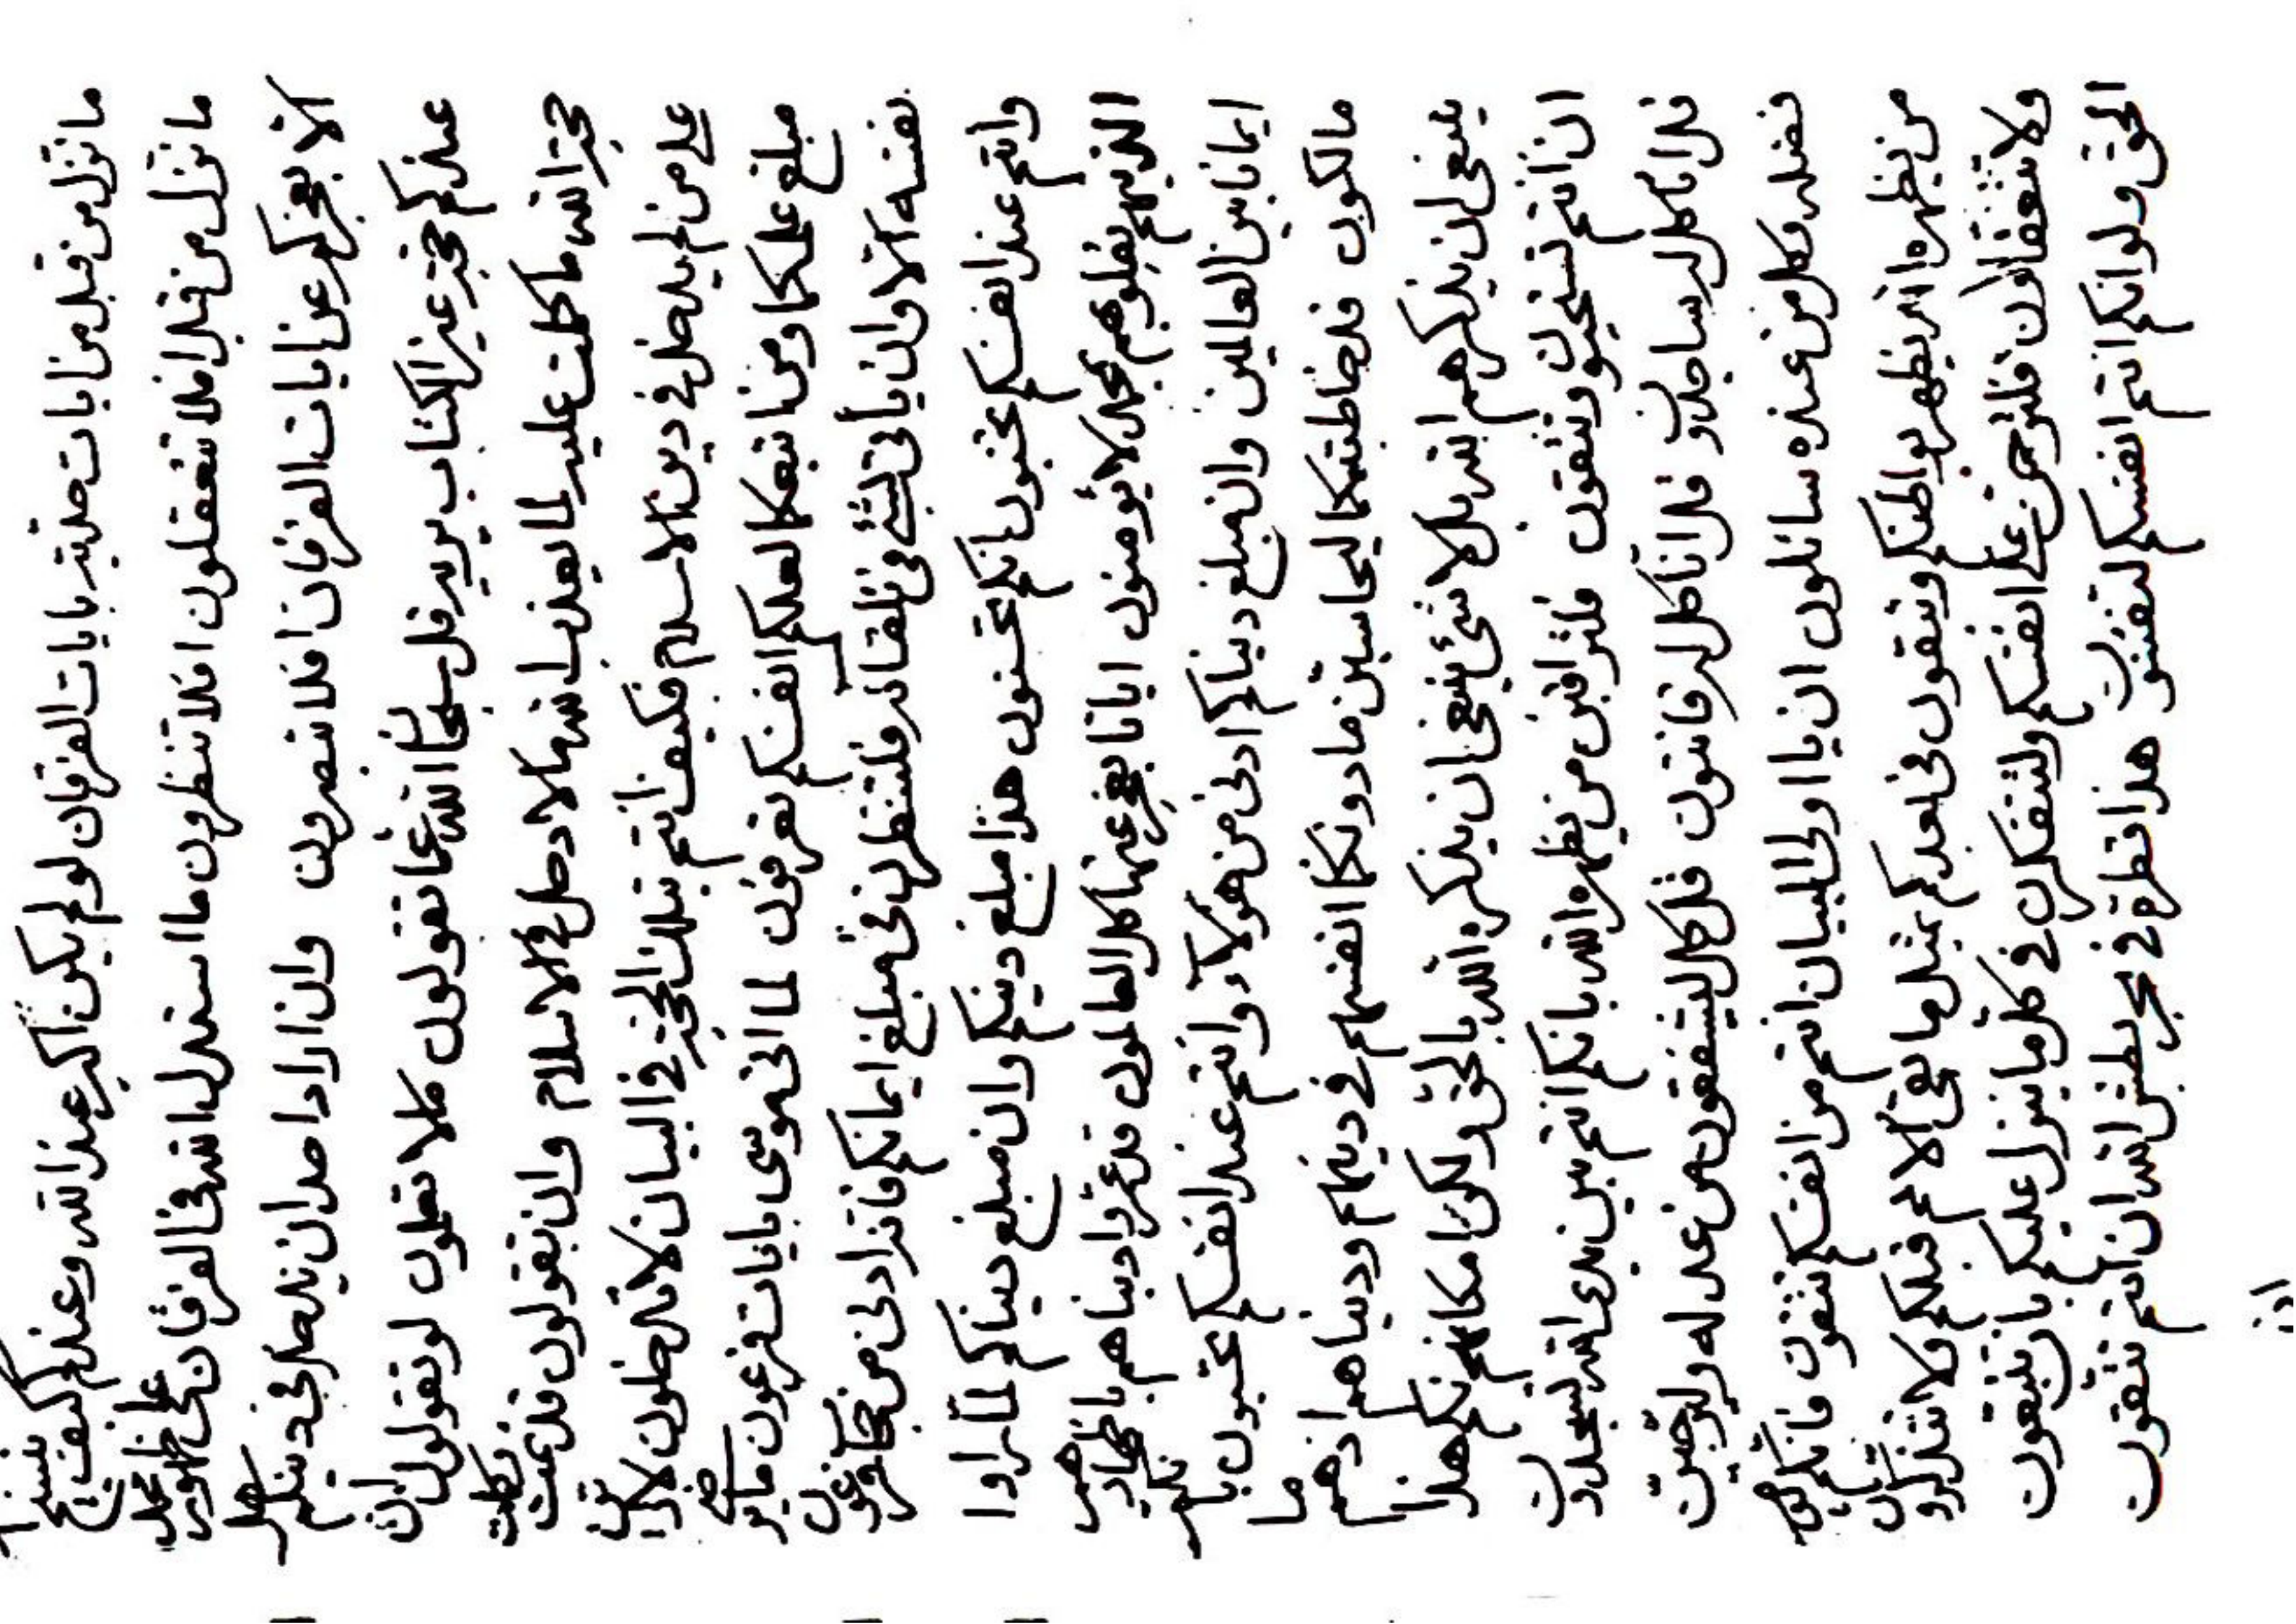 ما نزل من قبل من ايات حدثيه بايات الفرقان لو لم يكن اكبر عند الله وعندكم كيف ينسخ
ما نزل من قبل افلا تتعقلون افلا تنظرون ما استدل الله فى الفرقان على ظهور محمد
الا بعجزكم عن ايات الفرقان افلا تبصرون وان اراد احد ان يدخل فى دينكم هل
عندكم حجة غير الكتاب يريد قل سبحان الله عما تقولون كلا تعلمون لو تقولون ان
حجة الله ما كملت عليه لما يعذب الله لا دخل فى الاسلام وان تقولون قد تمت وكملت
على من لم يدخل فى دين الاسلام فكيف انتم بتلك الحجة فى البيان لا تدخلون لا
مبلغ علمكما ومن اتبعكما لعلكم انفسكم تعرفون لما اتى موسى بايات فرعون ما
نفسه الا وان ياتى بشئ فى تلقائه فلتنظرن فى مبلغ ايمانكم فانه ادنى من فرعون
وانتم عند انفسكم تحسبون بانكم تحسنون هذا مبلغ دينكم وان مبلغ دنياكم لما راوا
الذينهم بقلوبهم بمحمد لا يؤمنون ايانا يعجز عنها كل العالمون قد عمروا دنياهم باظهار
ايمانا بين العالمين وان مبلغ دنياكم ادنى من هؤلاء وانتم عند انفسكم تحسبون بانكم ما
مالكون قد خاطبتكما ليحاسبن ما دونكما انفسهم فى دينهم ودنياهم اذ هم ما
ينبغى ان يذكرهم الله بل لا شئ ينبغى ان يذكره الله بالحق ولكن امكانهم هذا
ان انتم تستحيون وتتقون فلتراقبن من يظهره الله بانكم انتم بين يدى الله لتسجدون
قل انا كل له ساجدون قل انا كل له قانتون قل كل ليشفقون من عدله وليرجون
فضله وكل من عنده سائلون ان يا اولى البيان انتم من انفسكم تتقون فانكم
من يظهره الله يظهر بواطنكم وتتقون فى بعدكم بمثل ما بقى الامم قبلكم ولا تتذكرون
ولا تتعقلون فلترحمن على انفسكم ولتتفكرن فى كل ما ينزل عليكم بان تتبعون
الحق ولو انكم انتم انفسكم لتفنون هذا قطرة فى بحر بطش الله ان انتم تتقون
اذن